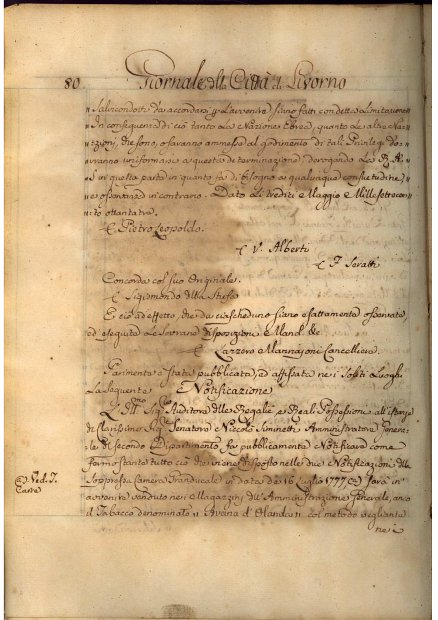 80. Giornale della Città di Livorno
"Salvicondotti da accordarsi p. l'avvenire siano fatti con detta Limitazione
"In conseguenza di ciò tanto La Nazione Ebrea, quanto Le altre Na-
"zioni, che sono, o saranno ammesse al godimento di tali Privilegi do-
"vranno uniformarsi a questa determinazione, derogando La R. A.
"S in questa parte in quanto fa di bisogno a qualunque consuetudine,
"e osservanza in contrario. Dato Li tredici Maggio Mille settecen-
"to ottantatre.
Pietro Leopoldo.
V. Alberti
F. Seratti
Concorda col suo Originale.
Sigismondo della Stufa
E ciò ad effetto, che da ciascheduno siano esattamente osservate,
ed eseguite Le Sovrane disposizioni e Mand. &c
Lazzero Mannajoni Cancelliere.
Parimente è stata pubblicata, ed affissata nei soliti Luoghi
La seguente Notificazione
L'Ill.mo Sig.re Auditore delle Regalie e Reali Possessioni all'istanza
del Clarissimo Sig.re Senatore Niccolò Siminetti Amministratore Genera-
le del secondo Dipartimento fa pubblicamente Notificare come
fermo stante tutto ciò che viene disposto nelle due Notificazioni della
Soppressa Camera Granducale in data de 16 Luglio 1777 sarà in
avvenire venduto nei Magazzini dell'Amministrazione Generale, anco
il Tabacco denominato "Avena d'Olanda" col metodo vegliante
nei
Ved. J.
Carte